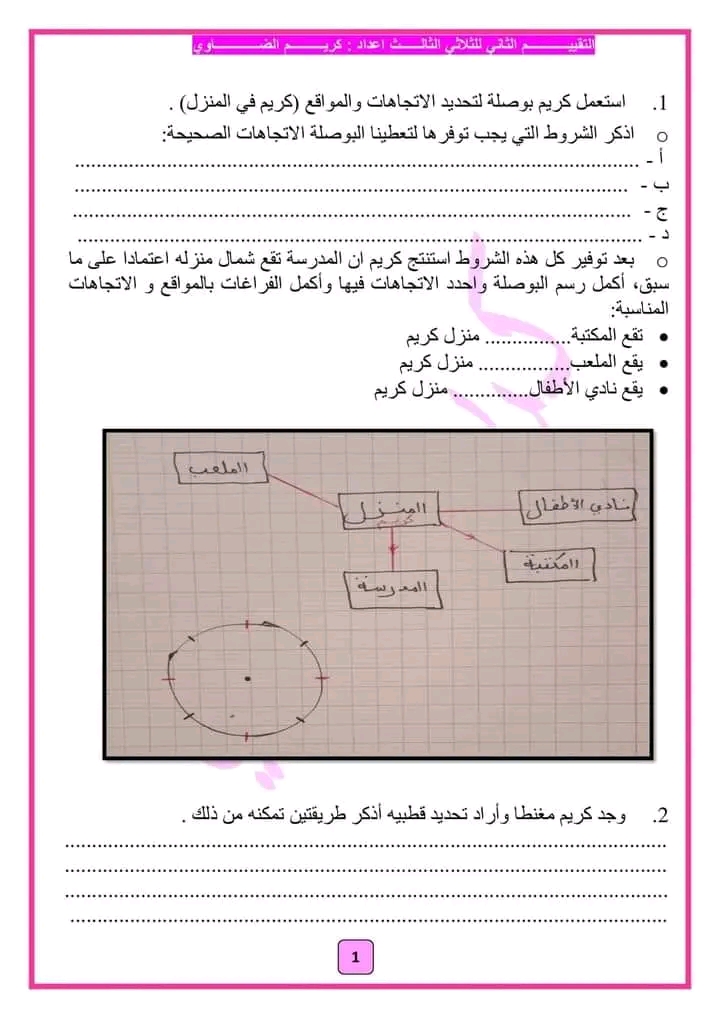 التقييـــــم الثاني للثلاثي الثالـــث اعداد : كريـــم الضـــــاوي
1. استعمل كريم بوصلة لتحديد الاتجاهات والمواقع (كريم في المنزل) .
o اذكر الشروط التي يجب توفرها لتعطينا البوصلة الاتجاهات الصحيحة:
أ - ........................................................................
ب - ........................................................................
ج - ........................................................................
د - ........................................................................
o بعد توفير كل هذه الشروط استنتج كريم ان المدرسة تقع شمال منزله اعتمادا على ما
سبق، أكمل رسم البوصلة واحدد الاتجاهات فيها وأكمل الفراغات بالمواقع و الاتجاهات
المناسبة:
• تقع المكتبة................ منزل كريم
• يقع الملعب................. منزل كريم
• يقع نادي الأطفال.............. منزل كريم
الملعب
المنزل
كريم
نادي الأطفال
المكتبة
المدرسة
2. وجد كريم مغنطا وأراد تحديد قطبيه أذكر طريقتين تمكنه من ذلك .
........................................................................
........................................................................
........................................................................
........................................................................
1